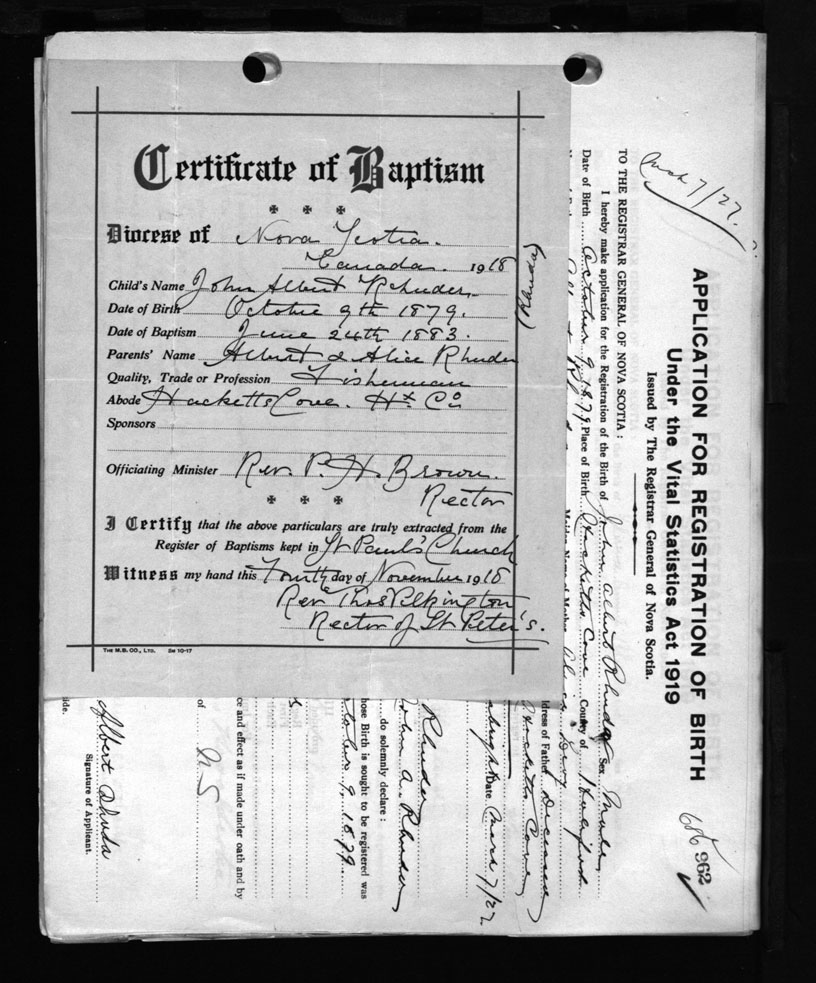 Certificate of Baptism
Diocese of Nova Scotia.
Canada. 1918
Child's Name John Albert Rhuder.
Date of Birth October 9th 1879.
Date of Baptism June 24th 1883.
Parents' Name Albert & Alice Rhuder
Quality, Trade or Profession Fisherman
Abode Hacketts Cove. Hx Co
Sponsors
Officiating Minister Rev. P. H. Brown.
Rector
I Certify that the above particulars are truly extracted from the
Register of Baptisms kept in St Paul's Church
Witness my hand this Fourth day of November 1918
Rev Thos Pilkington
Rector of St Peter's.
THE M.B. CO., LTD. 5M 10-17
March 7/27.
APPLICATION FOR REGISTRATION OF BIRTH
Under the Vital Statistics Act 1919
Issued by The Registrar General of Nova Scotia.
962
TO THE REGISTRAR GENERAL OF NOVA SCOTIA:
I hereby make application for the Registration of the Birth of John Albert Rhuder Sex Male
Date of Birth October 9, 1879. Place of Birth Hacketts Cove County of Halifax
Maiden Name of Mother Alice
dress of Father Deceased
Hacketts Cove
Date March 7/27.
Rhuder
John A. Rhuder
do solemnly declare:
hose Birth is sought to be registered was
tober 9. 1879.
ce and effect as if made under oath and by
of N S
side.
Albert Rhuda
Signature of Applicant.